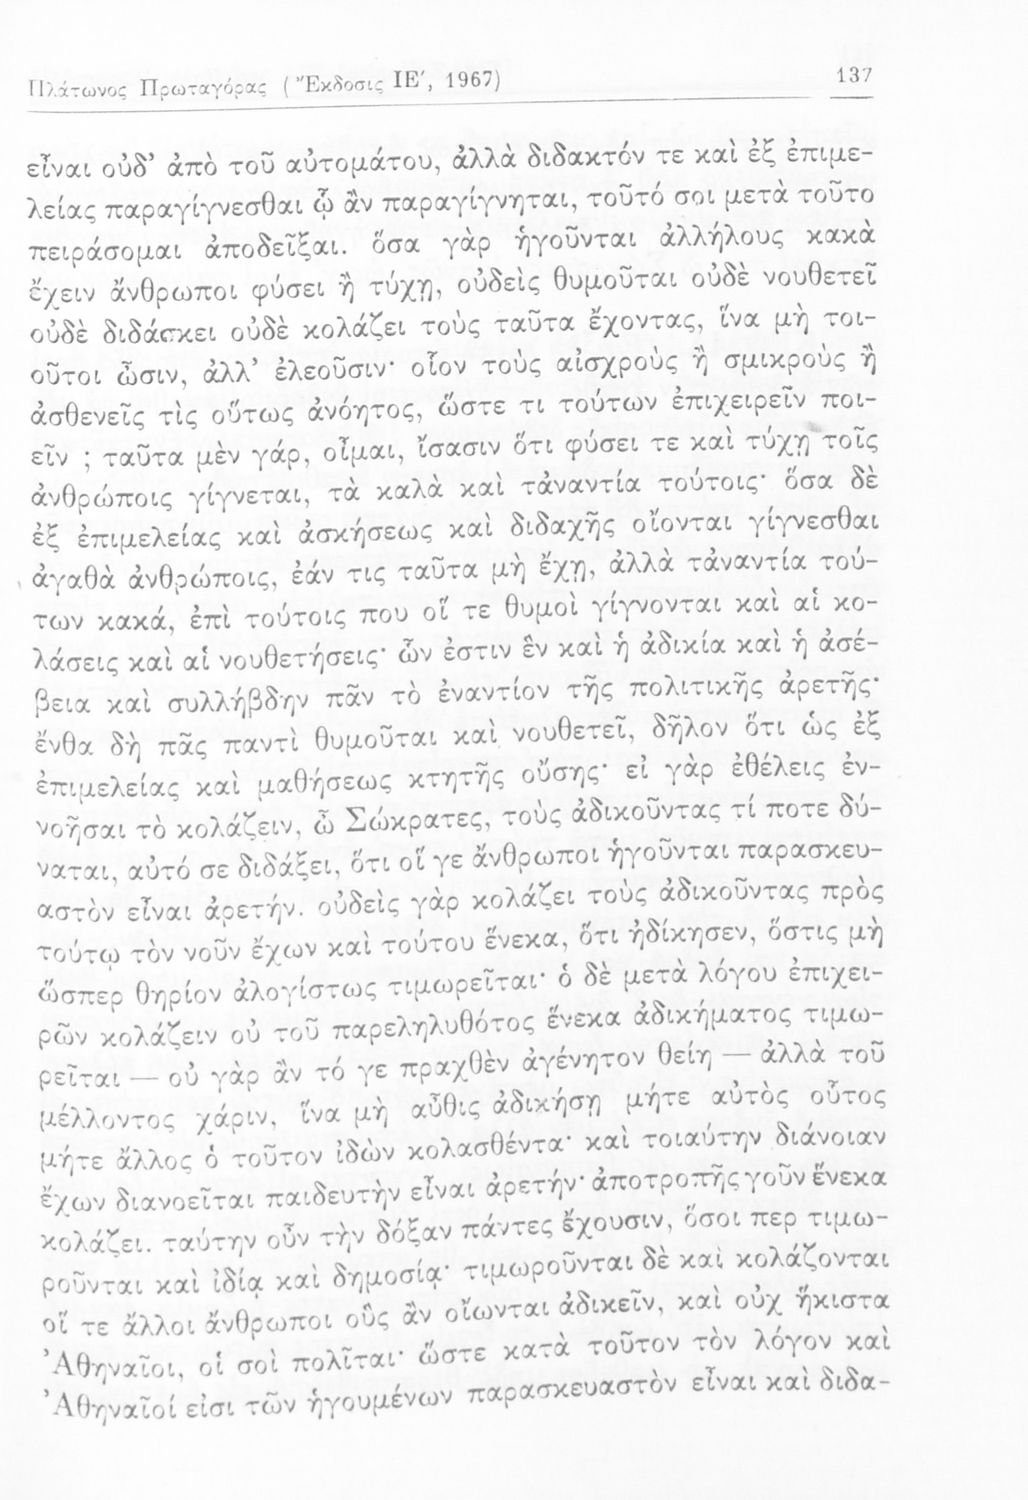 Πλάτωνος Πρωταγόρας (Ἔκδοσις ΙΕ′, 1967) 137
εἶναι οὐδ’ ἀπὸ τοῦ αὐτομάτου, ἀλλὰ διδακτόν τε καὶ ἐξ ἐπιμε-
λείας παραγίγνεσθαι ᾧ ἂν παραγίγνηται, τοῦτό σοι μετὰ τοῦτο
πειράσομαι ἀποδεῖξαι. ὅσα γὰρ ἡγοῦνται ἀλλήλους κακὰ
ἔχειν ἄνθρωποι φύσει ἢ τύχῃ, οὐδεὶς θυμοῦται οὐδὲ νουθετεῖ
οὐδὲ διδάσκει οὐδὲ κολάζει τοὺς ταῦτα ἔχοντας, ἵνα μὴ τοι-
οῦτοι ὦσιν, ἀλλ’ ἐλεοῦσιν· οἷον τοὺς αἰσχροὺς ἢ σμικροὺς ἢ
ἀσθενεῖς τὶς οὕτως ἀνόητος, ὥστε τι τούτων ἐπιχειρεῖν ποι-
εῖν ; ταῦτα μὲν γάρ, οἶμαι, ἴσασιν ὅτι φύσει τε καὶ τύχῃ τοῖς
ἀνθρώποις γίγνεται, τὰ καλὰ καὶ τἀναντία τούτοις· ὅσα δὲ
ἐξ ἐπιμελείας καὶ ἀσκήσεως καὶ διδαχῆς οἴονται γίγνεσθαι
ἀγαθὰ ἀνθρώποις, ἐάν τις ταῦτα μὴ ἔχῃ, ἀλλὰ τἀναντία τού-
των κακά, ἐπὶ τούτοις που οἵ τε θυμοὶ γίγνονται καὶ αἱ κο-
λάσεις καὶ αἱ νουθετήσεις· ὧν ἐστιν ἓν καὶ ἡ ἀδικία καὶ ἡ ἀσέ-
βεια καὶ συλλήβδην πᾶν τὸ ἐναντίον τῆς πολιτικῆς ἀρετῆς·
ἔνθα δὴ πᾶς παντὶ θυμοῦται καὶ νουθετεῖ, δῆλον ὅτι ὡς ἐξ
ἐπιμελείας καὶ μαθήσεως κτητῆς οὔσης· εἰ γὰρ ἐθέλεις ἐν-
νοῆσαι τὸ κολάζειν, ὦ Σώκρατες, τοὺς ἀδικοῦντας τί ποτε δύ-
ναται, αὐτό σε διδάξει, ὅτι οἵ γε ἄνθρωποι ἡγοῦνται παρασκευ-
αστὸν εἶναι ἀρετήν. οὐδεὶς γὰρ κολάζει τοὺς ἀδικοῦντας πρὸς
τούτῳ τὸν νοῦν ἔχων καὶ τούτου ἕνεκα, ὅτι ἠδίκησεν, ὅστις μὴ
ὥσπερ θηρίον ἀλογίστως τιμωρεῖται· ὁ δὲ μετὰ λόγου ἐπιχει-
ρῶν κολάζειν οὐ τοῦ παρεληλυθότος ἕνεκα ἀδικήματος τιμω-
ρεῖται — οὐ γὰρ ἂν τό γε πραχθὲν ἀγένητον θείη — ἀλλὰ τοῦ
μέλλοντος χάριν, ἵνα μὴ αὖθις ἀδικήσῃ μήτε αὐτὸς οὗτος
μήτε ἄλλος ὁ τοῦτον ἰδὼν κολασθέντα· καὶ τοιαύτην διάνοιαν
ἔχων διανοεῖται παιδευτὴν εἶναι ἀρετήν· ἀποτροπῆς γοῦν ἕνεκα
κολάζει. ταύτην οὖν τὴν δόξαν πάντες ἔχουσιν, ὅσοι περ τιμω-
ροῦνται καὶ ἰδίᾳ καὶ δημοσίᾳ· τιμωροῦνται δὲ καὶ κολάζονται
οἵ τε ἄλλοι ἄνθρωποι οὓς ἂν οἴωνται ἀδικεῖν, καὶ οὐχ ἥκιστα
Ἀθηναῖοι, οἱ σοὶ πολῖται· ὥστε κατὰ τοῦτον τὸν λόγον καὶ
Ἀθηναῖοί εἰσι τῶν ἡγουμένων παρασκευαστὸν εἶναι καὶ διδα-